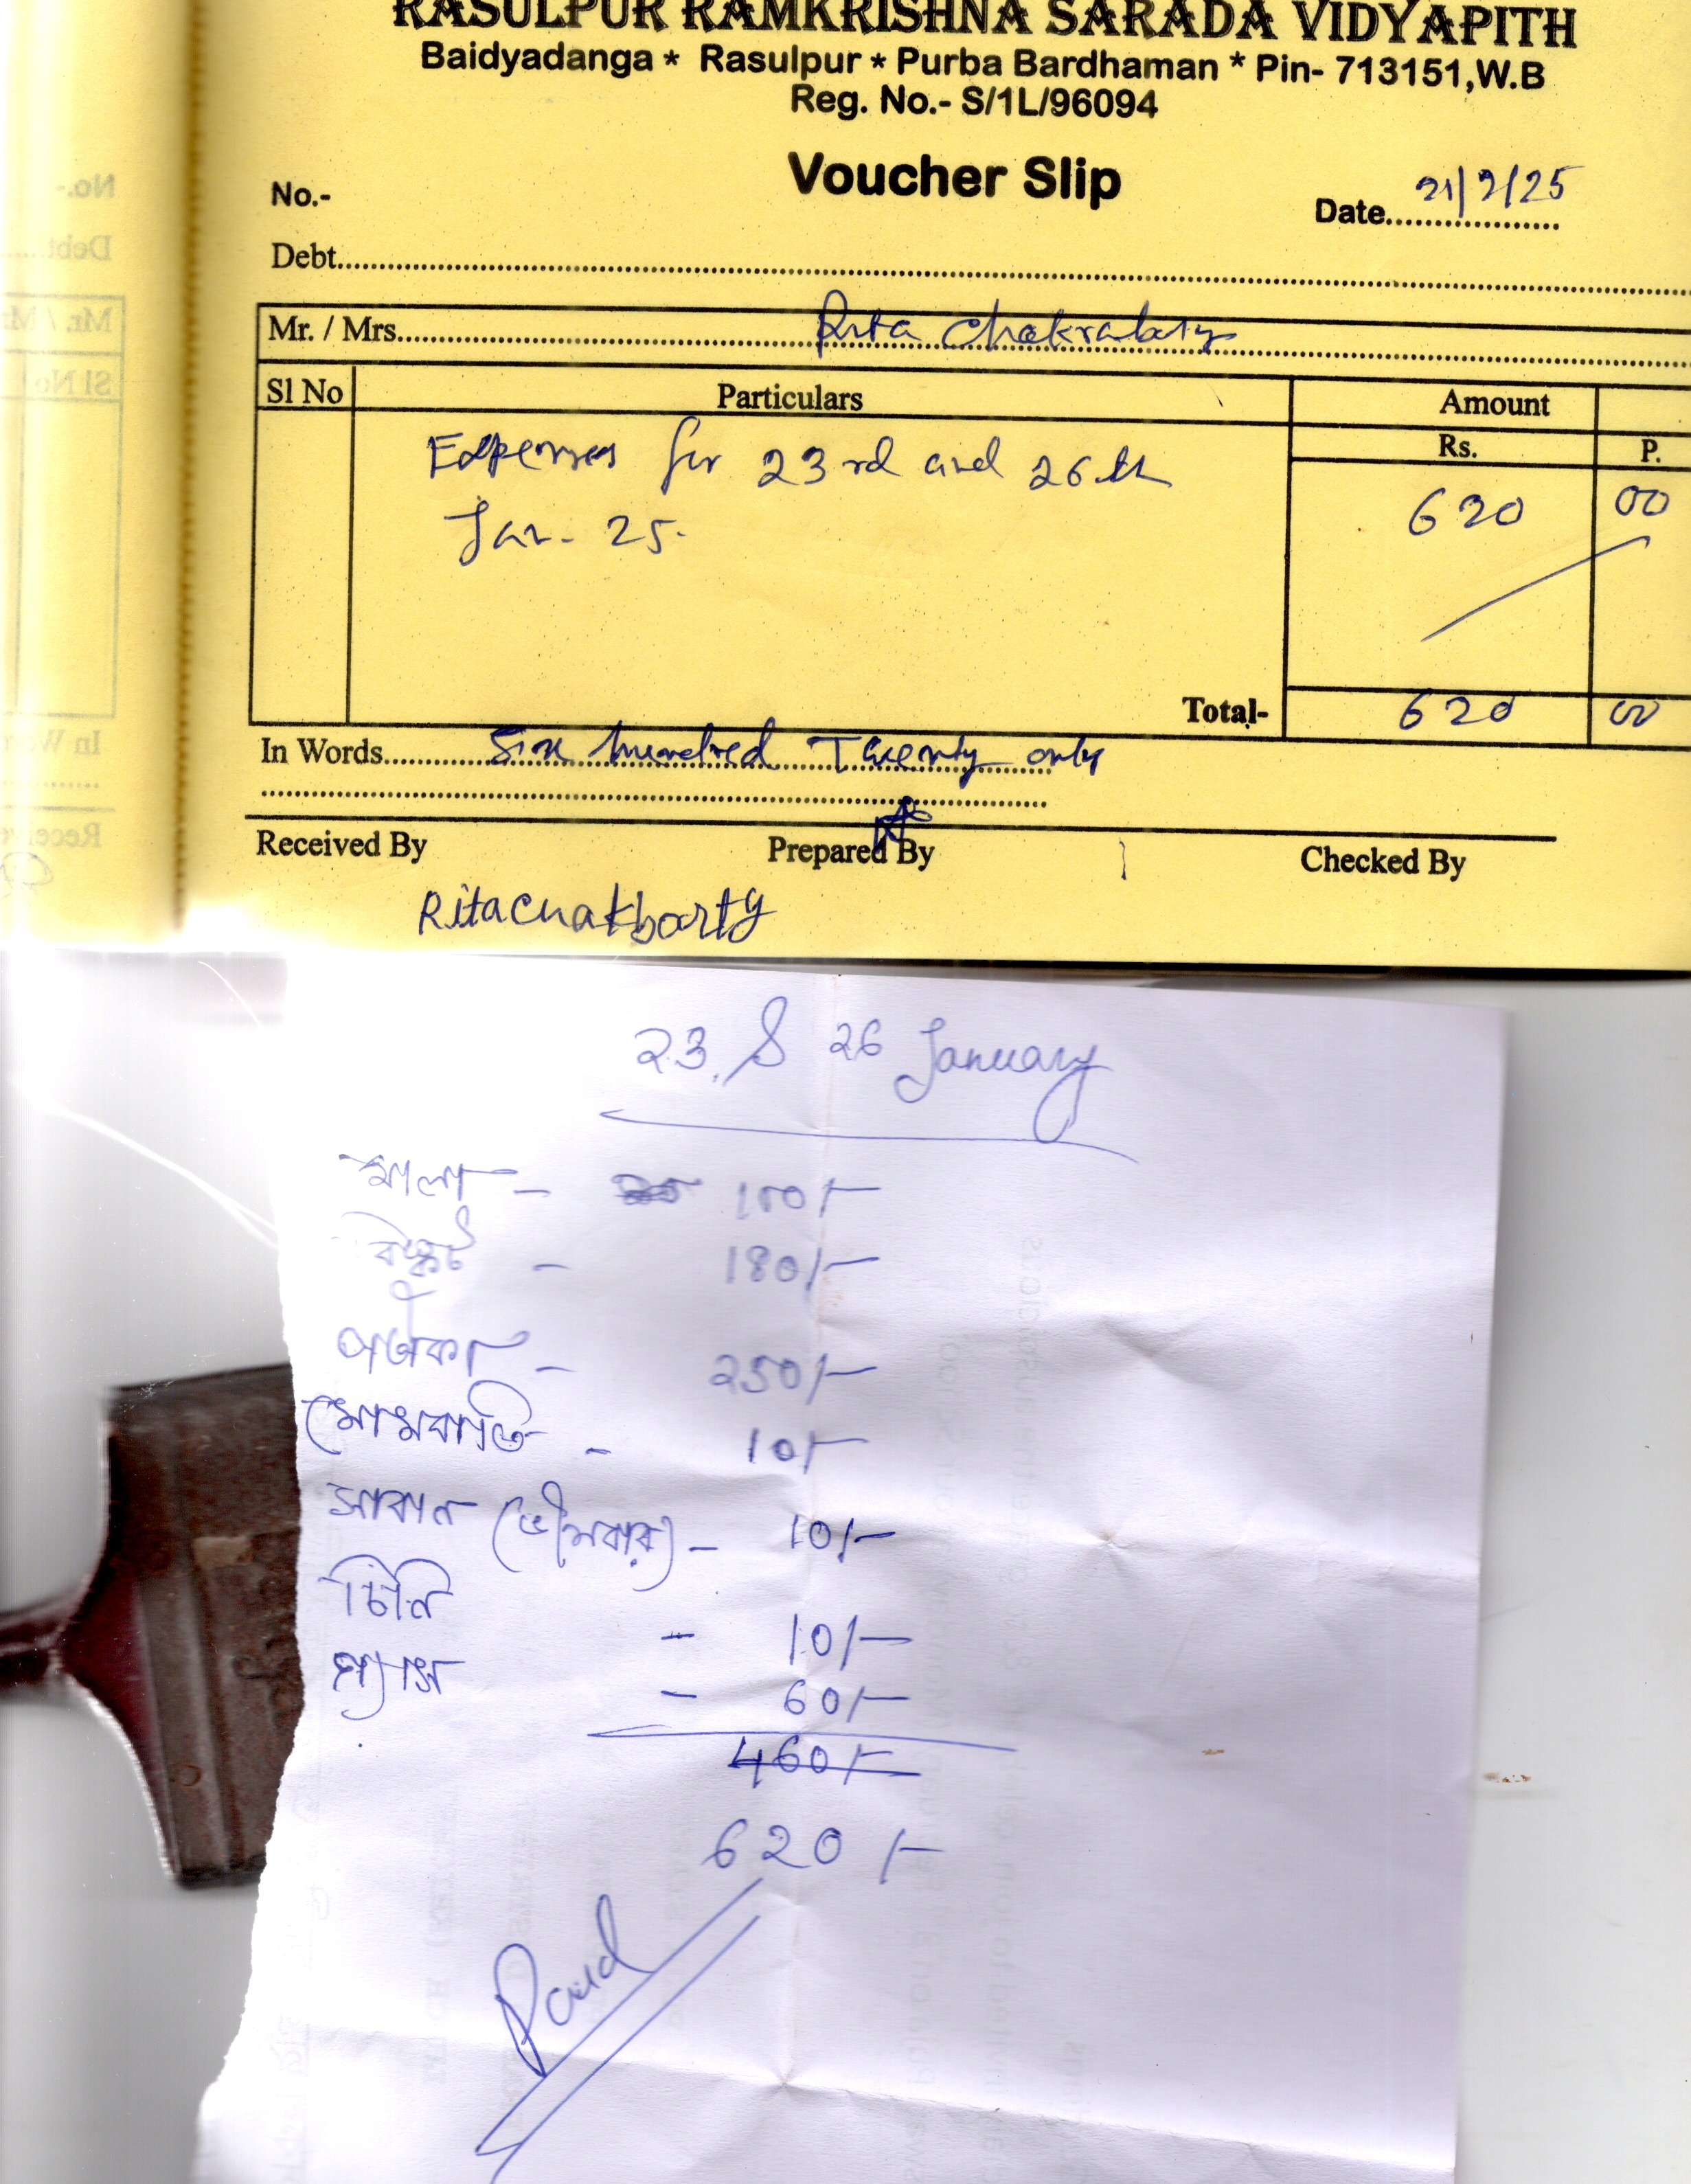 RASULPUR RAMKRISHNA SARADA VIDYAPITH
Baidyadanga * Rasulpur * Purba Bardhaman * Pin- 713151,W.B
Reg. No.- S/1L/96094
Voucher Slip
No.-
Date 21/2/25
Debt
Mr. / Mrs. Rita Chakrabarty
Sl No Particulars Amount
Rs. P.
Expenses for 23rd and 26th 620 00
Jan- 25.
Total- 620 00
In Words Six hundred Twenty only
Received By Prepared By Checked By
Ritachakbarty
23 & 26 January
মালা - 100/-
বিস্কুট - 180/-
পতাকা - 250/-
মোমবাতি - 10/-
সাবান (ভীমবার) - 10/-
চিনি - 10/-
গ্যাস - 60/-
460/-
620/-
Paid